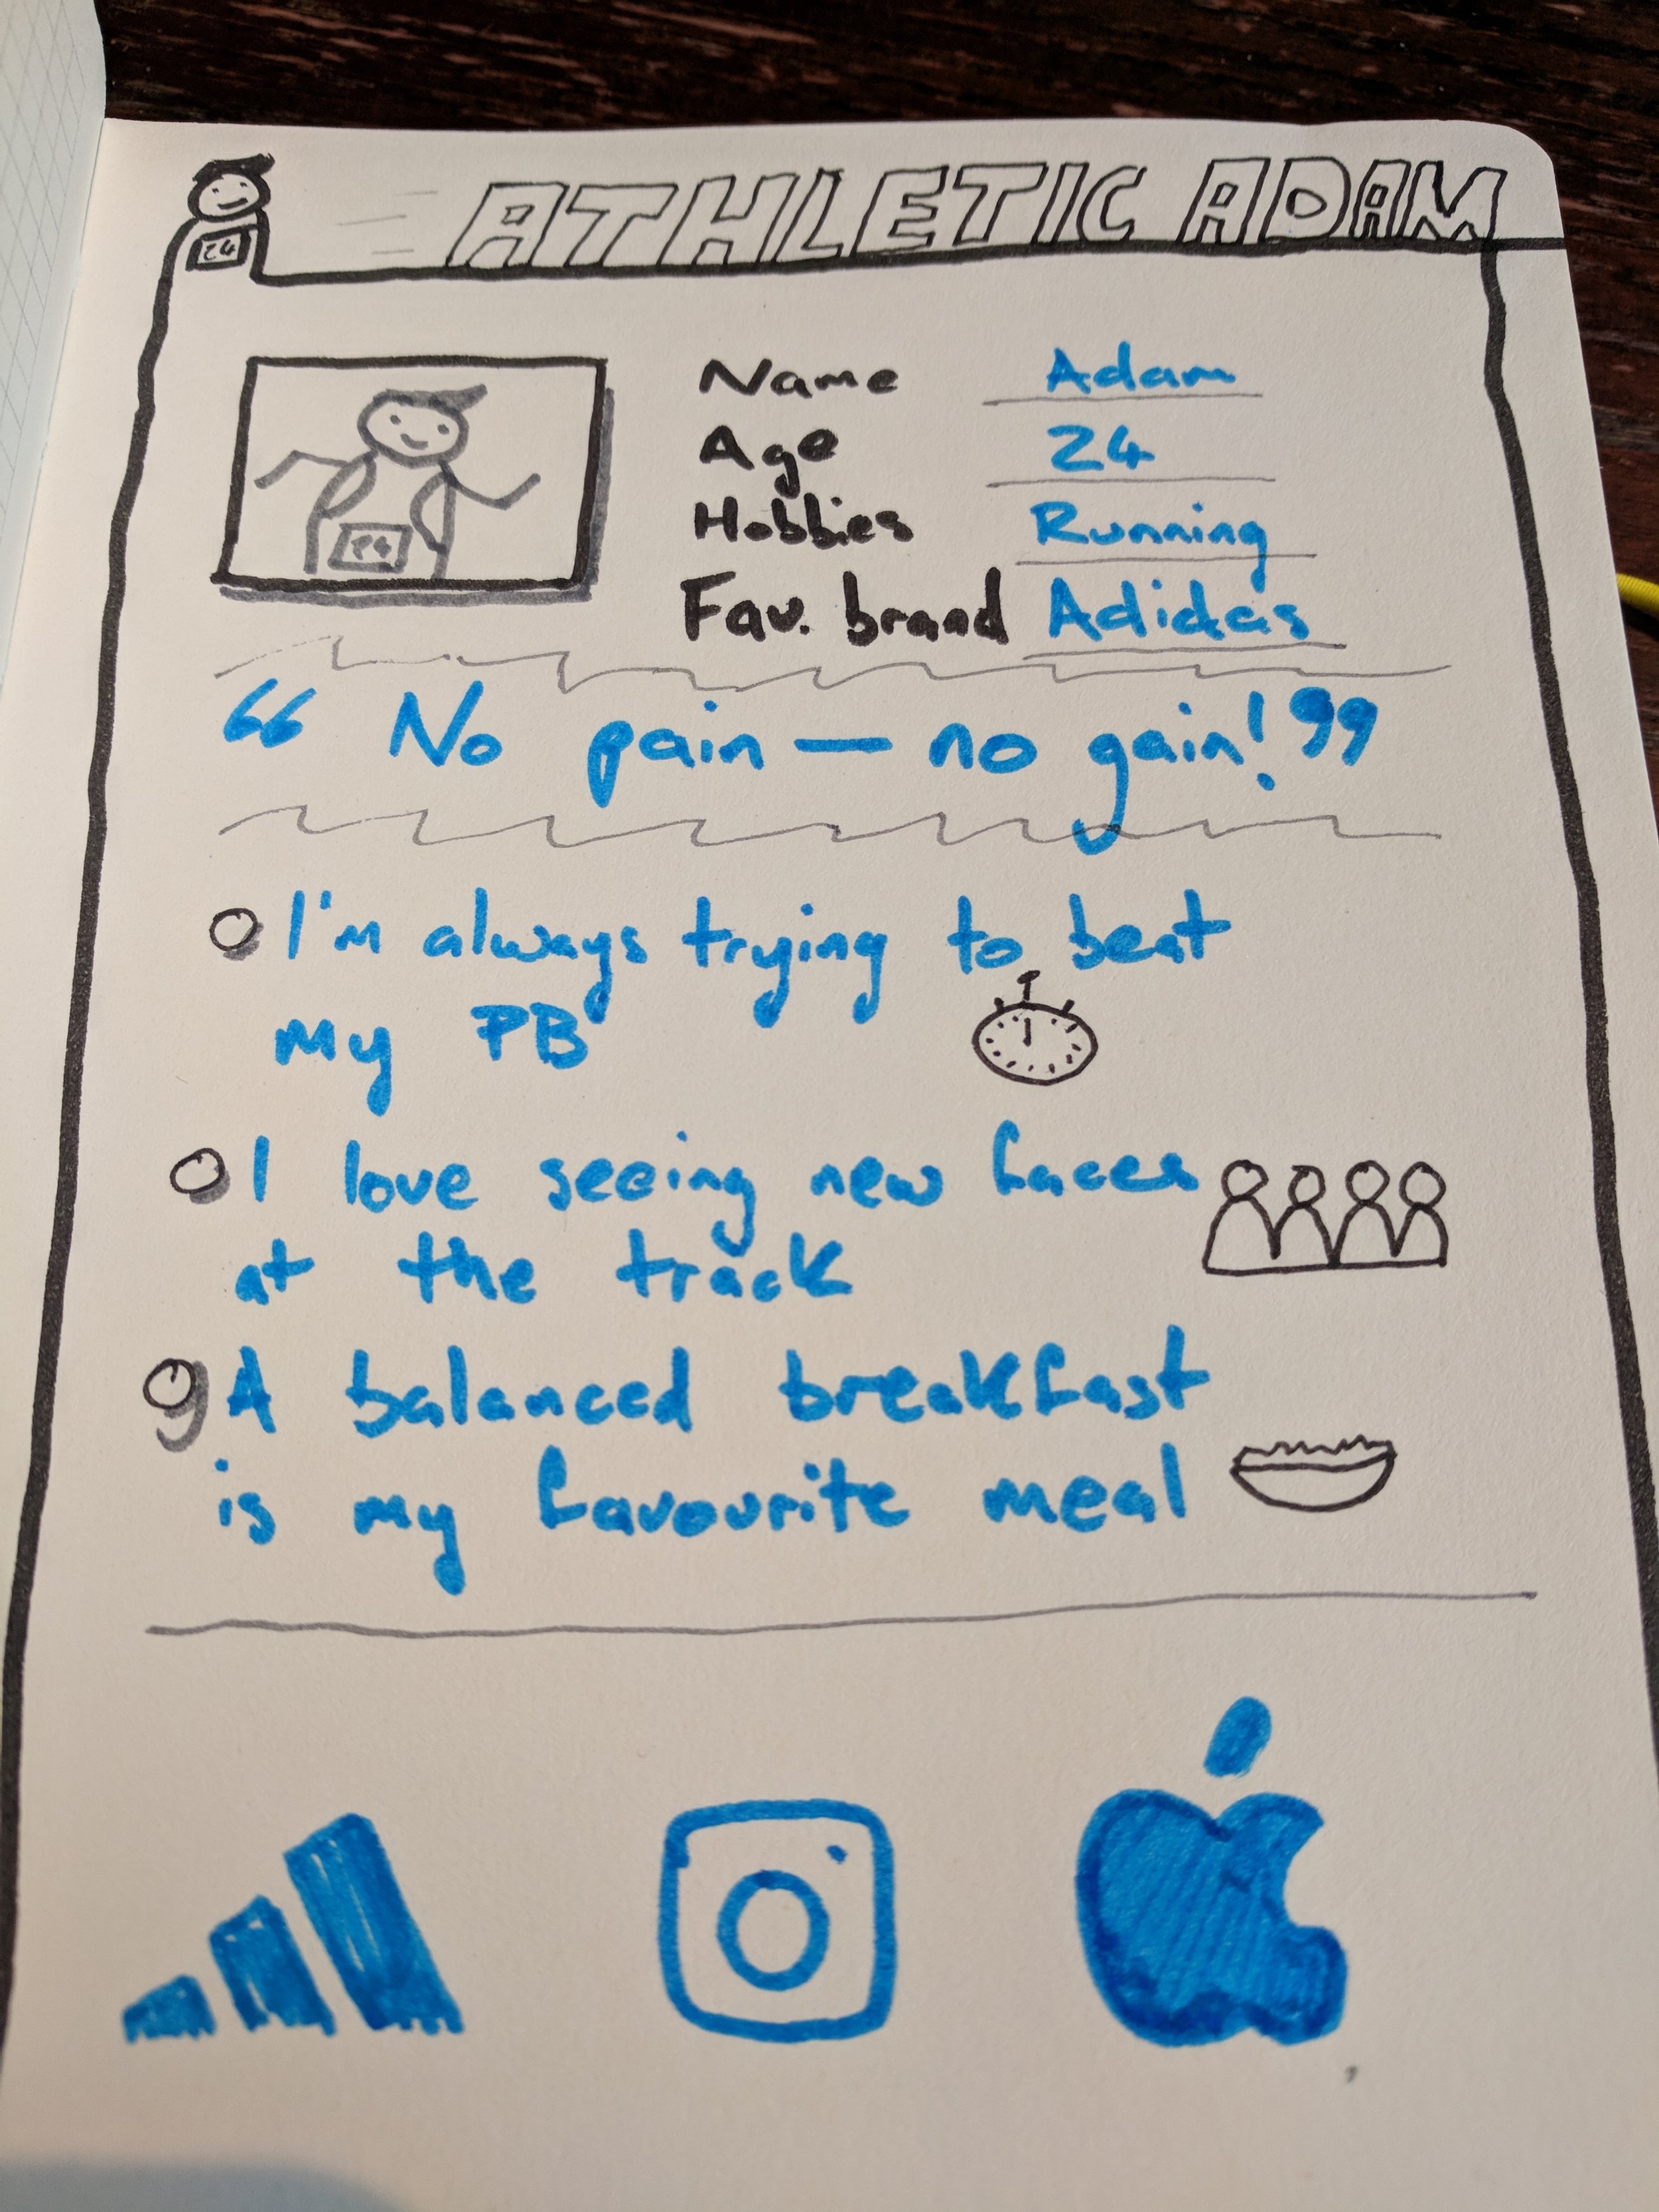 24
ATHLETIC ADAM
24
Name Adam
Age 24
Hobbies Running
Fav. brand Adidas
“ No pain — no gain! ”
I'm always trying to beat
my PB
I love seeing new faces
at the track
A balanced breakfast
is my favourite meal